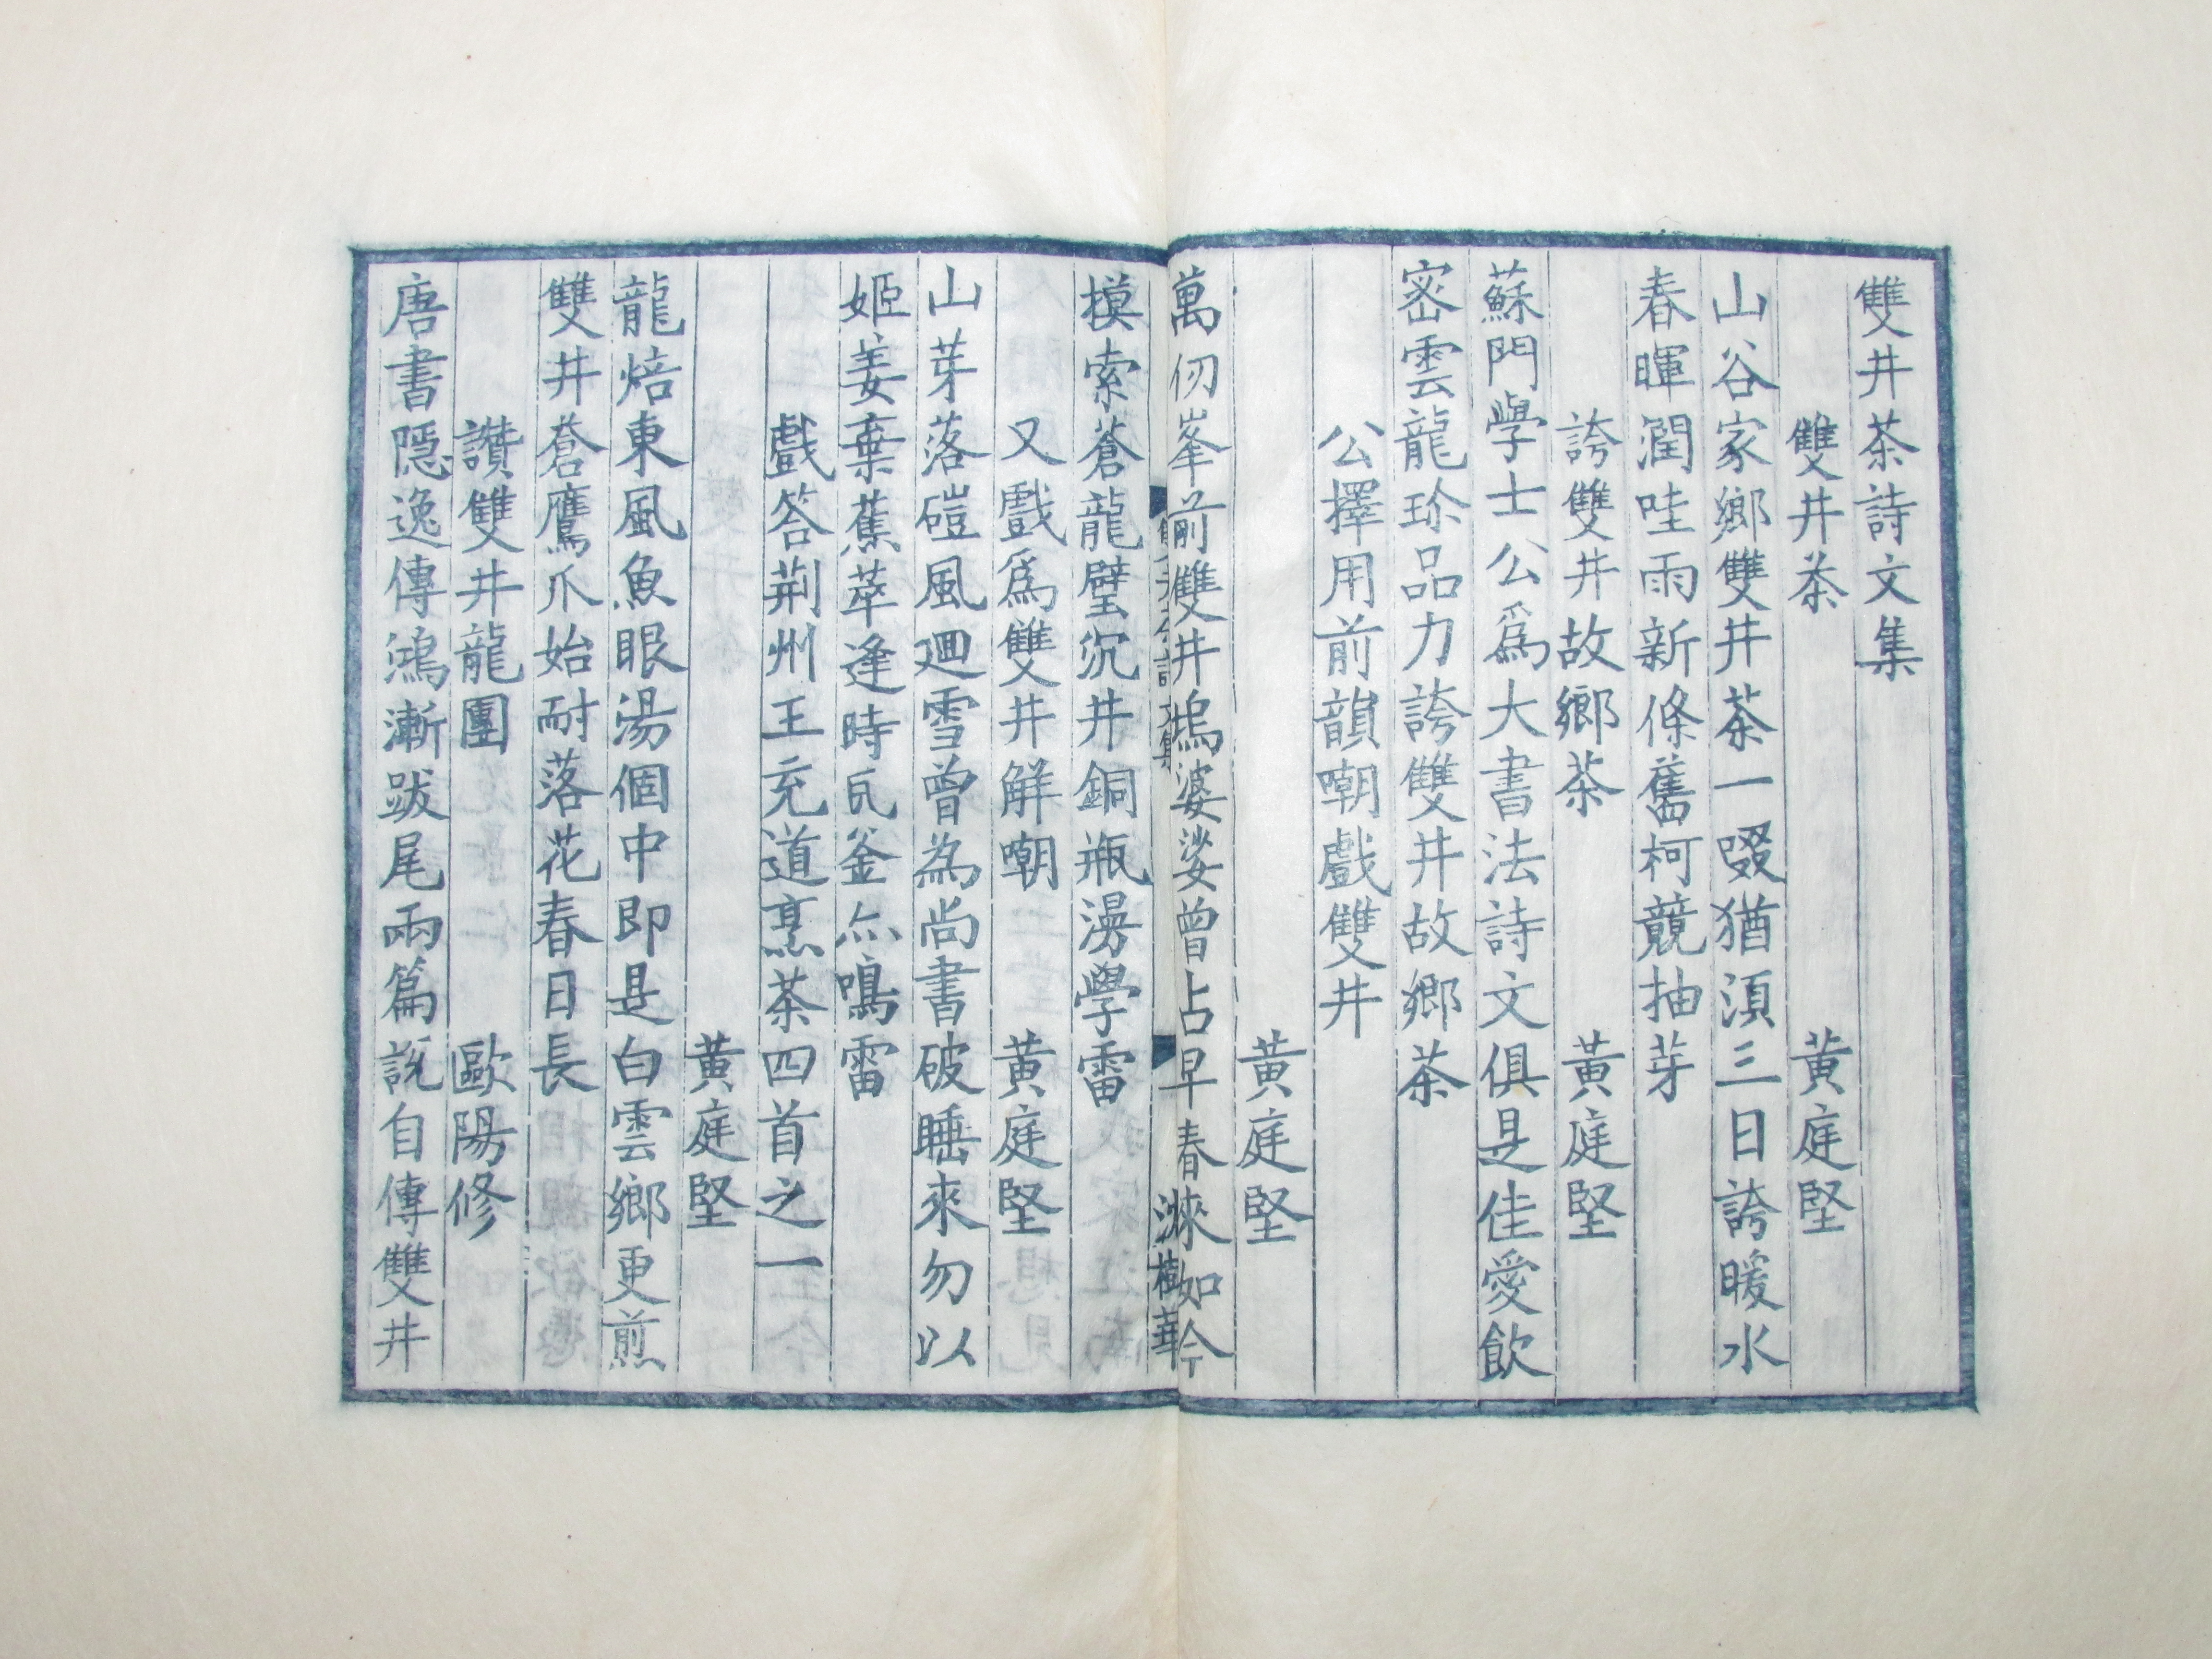 雙井茶詩文集
雙井茶　黃庭堅
山谷家鄉雙井茶一啜猶湏三日誇暖水
春暉潤哇雨新條舊柯競抽芽
誇雙井故鄉茶　黃庭堅
蘇門學士公爲大書法詩文俱是佳愛飲
密雲龍珍品力誇雙井故鄉茶
公擇用前韻嘲戲雙井
黃庭堅
萬仞峯前雙井塢婆娑曾占早春來如今
雙井茶詩文集
樹華
摸索蒼龍璧沉井銅瓶漫學雷
又戲爲雙井解嘲　黃庭堅
山芽落磑風迴雪曾為尚書破睡來勿以
姬姜棄蕉萃逢時瓦釜亦鳴雷
戲答荊州王充道烹茶四首之一
黃庭堅
龍焙東風魚眼湯個中即是白雲鄉更煎
雙井蒼鷹爪始耐落花春日長
讚雙井龍團　歐陽修
唐書隱逸傳鴻漸跋尾兩篇說自傳雙井